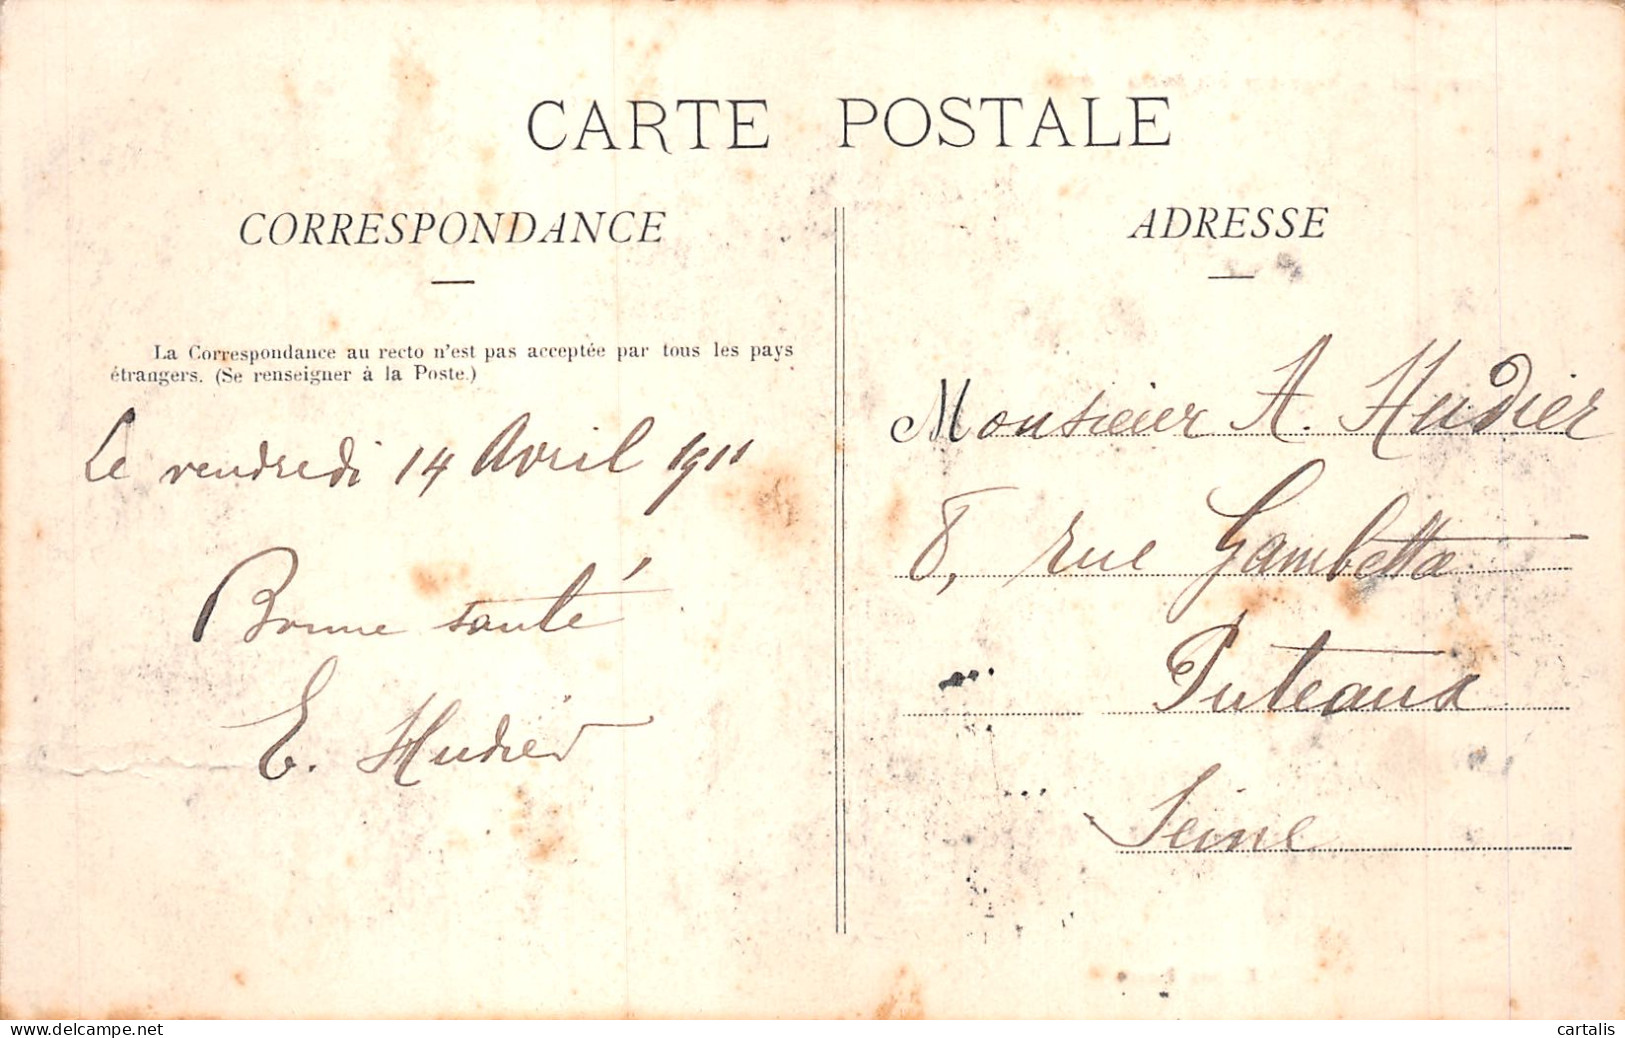 CARTE POSTALE
CORRESPONDANCE
La Correspondance au recto n'est pas acceptée par tous les pays
étrangers. (Se renseigner à la Poste.)
Le vendredi 14 Avril 1911
Bonne santé
E. Hudier
ADRESSE
Monsieur A. Hudier
8, rue Gambetta
Puteaux
Seine
© delcampe.net
cartalis